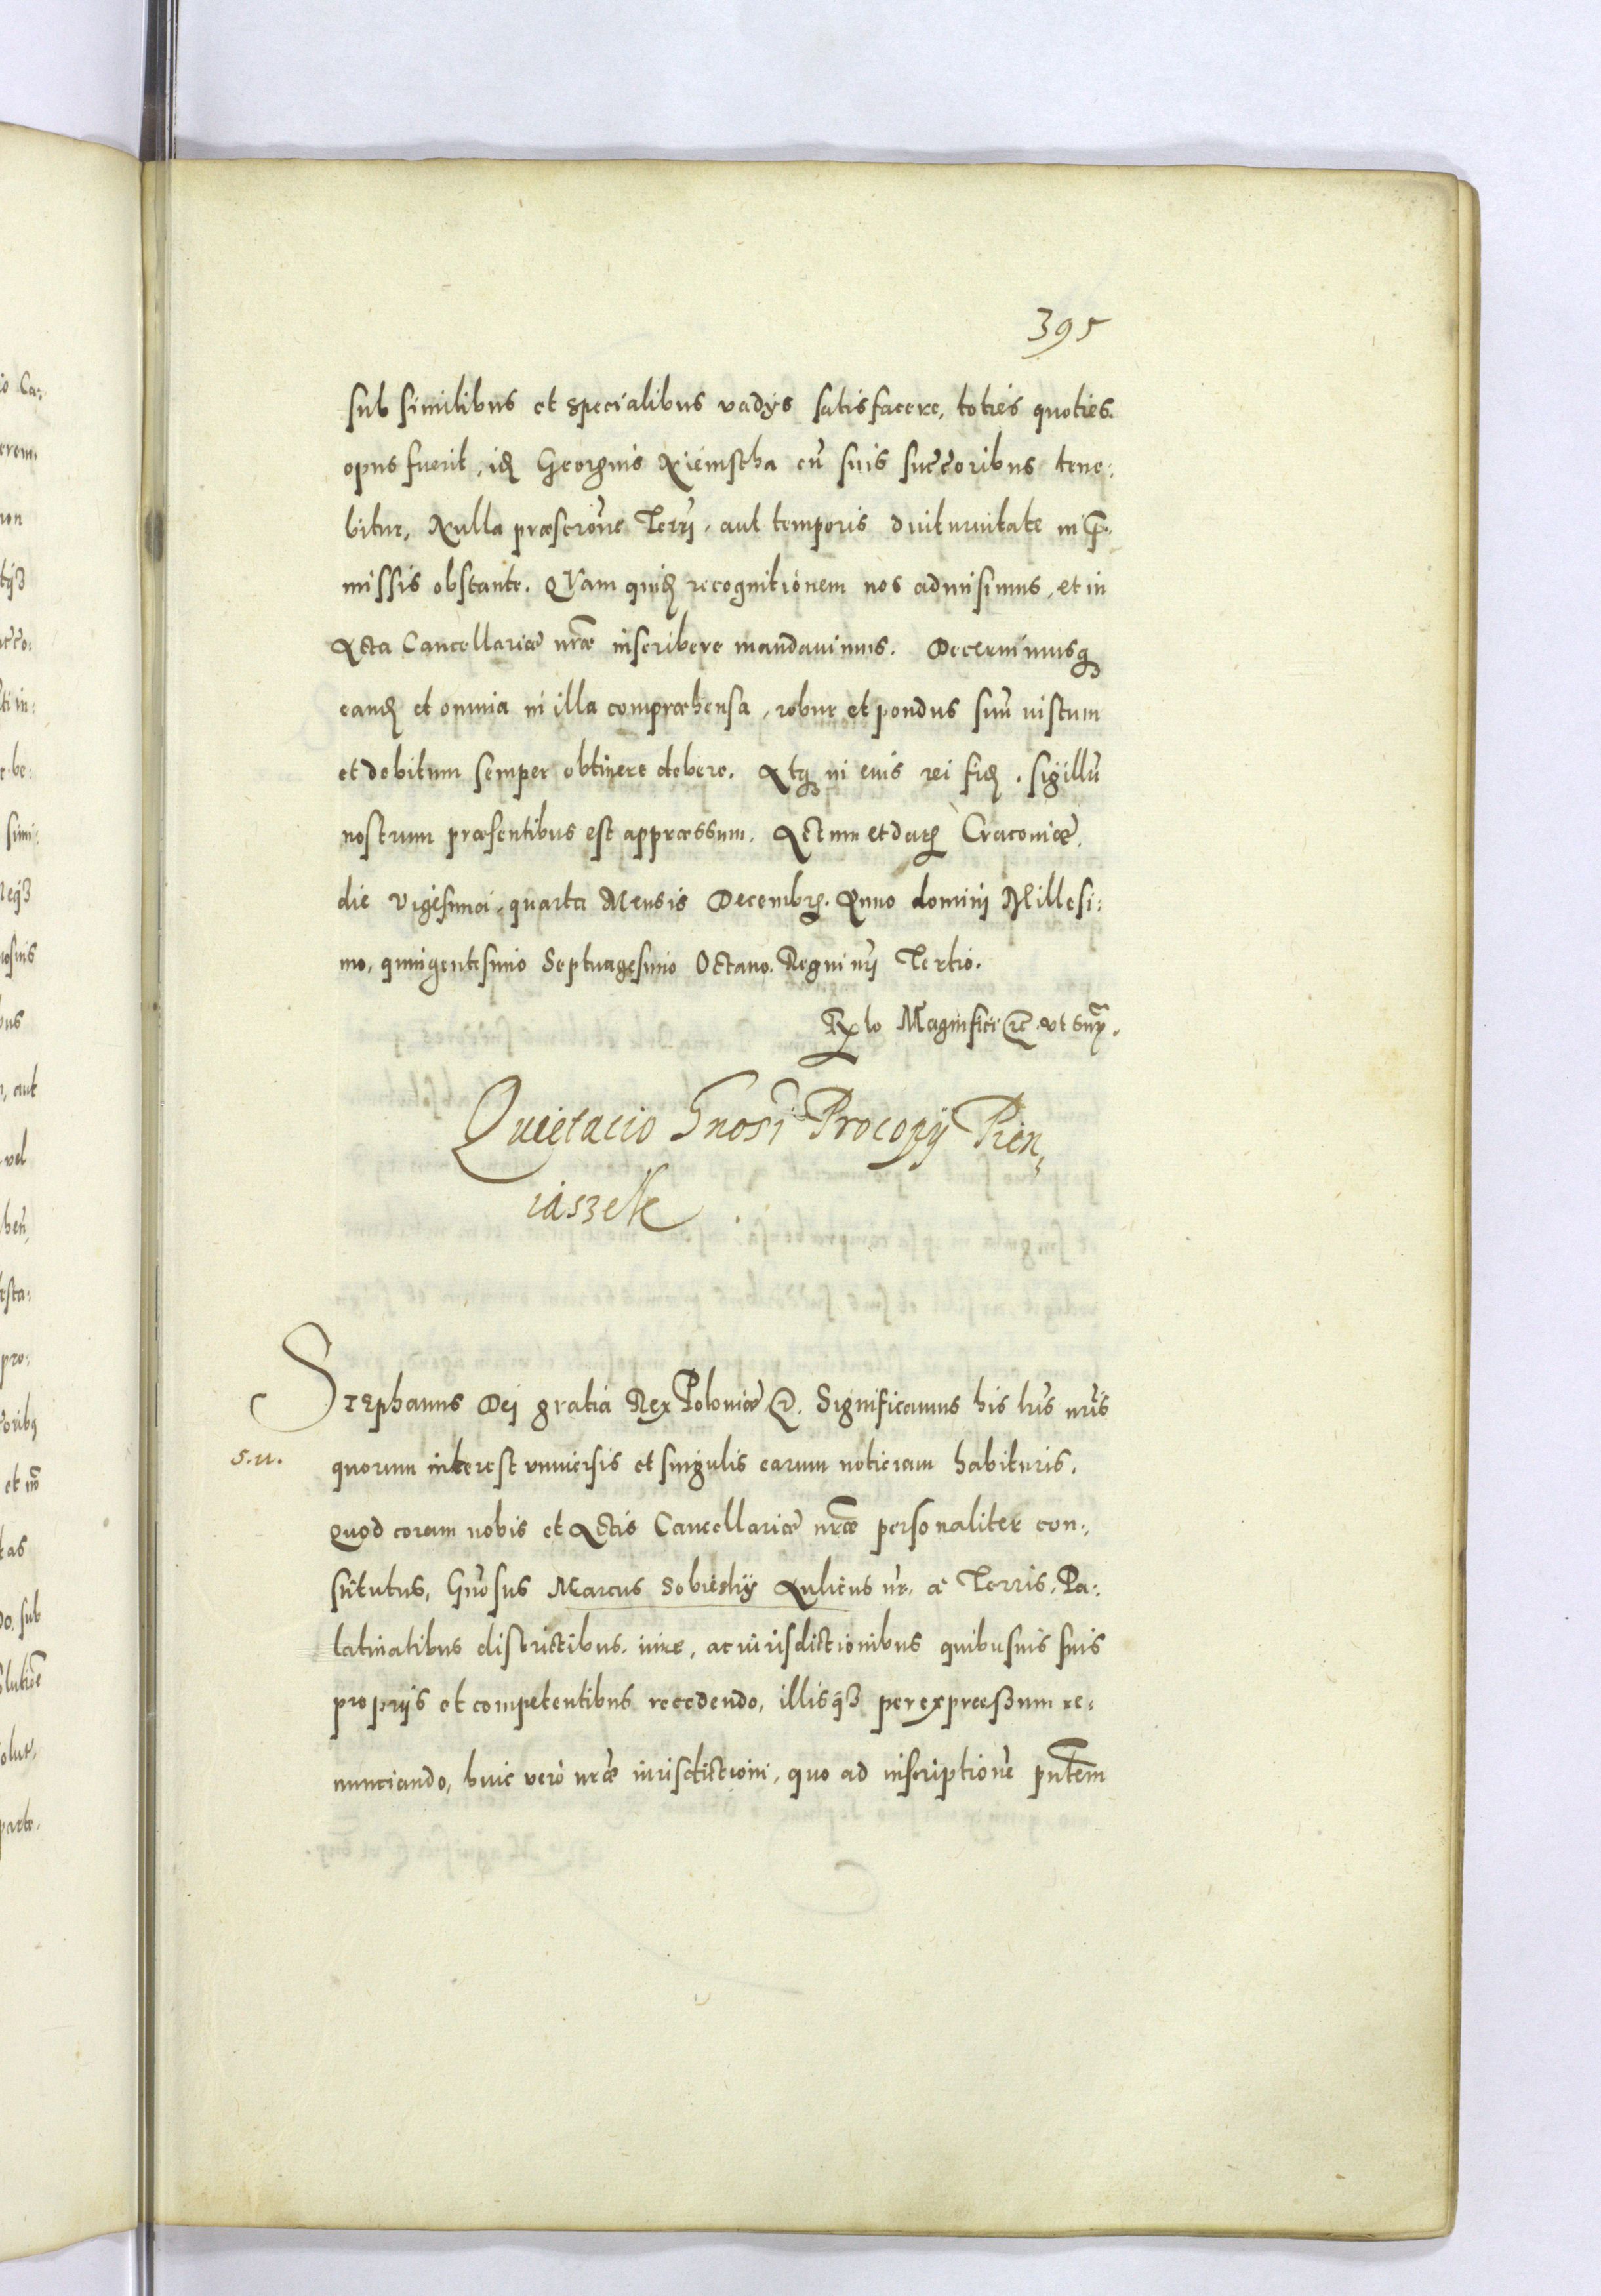 395
sub similibus et specialibus vadÿs satisfacere, toties quoties.
opus fuerit, idẽ Georgius Niemstha cũ suis succõribus tene:
bitur, Nulla præscrõne Terrj, aut temporis diuturnitate in p̃-
missis obstante. QVam quidẽ recognitionem nos admisimus, et in
Acta Cancellariæ nr̃æ inscribere mandauimus. Decernimusq3
eandẽ et omnia in illa compræhensa, robur et pondus suũ iustum
et debitum semper obtinere debere. Atq3 in cuis rei fidẽ. sigillũ
nostrum præsentibus est appræssum. Actum et datũ Cracoviæ,
die Vigesima, quarta Mensis Decembrs. Anno dominj Millesi:
mo, quingentesimo Septuagesimo Octauo. Regni nrj Tertio.
Rlo Magnifici etc ut supra.
Quietacio Gnosi Procopÿ Pien,
iaszek
Stephanus Dej gratia Rex Poloniæ etc. Significamus his lrĩs nrĩs
s. u. quorum interest vniuersis et singulis earum noticiam habituris.
Quod coram nobis et Actis Cancellariæ nr̃æ personaliter con:,
stitutus, Gnõsus Marcus Sobieskÿ Aulicus nr̃, a Terris, Pa:
latinatibus districtibus, iure, ac iurisdictionibus quibusuis suis
proprijs et competentibus recedendo, illisq3 per expræssum re:
nunciando, huic vero nr̃æ iurisdictioni, quo ad inscriptionẽ pñtem